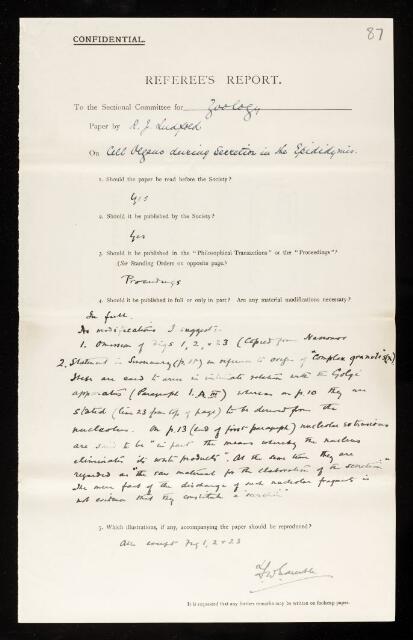 87
CONFIDENTIAL.
REFEREE'S REPORT.
To the Sectional Committee for Zoology
Paper by R. J. Ludford
On Cell Organs during Secretion in the Epididymis.
1. Should the paper be read before the Society?
Yes
2. Should it be published by the Society?
Yes
3. Should it be published in the "Philosophical Transactions" or the "Proceedings"?
(See Standing Orders on opposite page.)
Proceedings
4. Should it be published in full or only in part? Are any material modifications necessary?
In full.
As modifications I suggest:
1. Omission of Figs 1, 2, & 23 (Copied from
2. Statement in Summary (p. ) in reference to origin of "Complex granules"
These are said to arise in intimate relation with the Golgi
apparatus (Paragraph ) whereas on p. 10 they are
stated (line 23 from top of page) to be derived from the
nucleolus. On p. 13 (end of first paragraph) nucleolar extrusions
are said to be "in part the means whereby the nucleus
eliminates its waste products". At the same time they are
regarded as "the raw material for the elaboration of the secretion"
The mere fact of the discharge of such nucleolar fragments is
not evidence that they constitute a
5. Which illustrations, if any, accompanying the paper should be reproduced?
All except Fig 1, 2 & 23
It is requested that any further remarks may be written on foolscap paper.